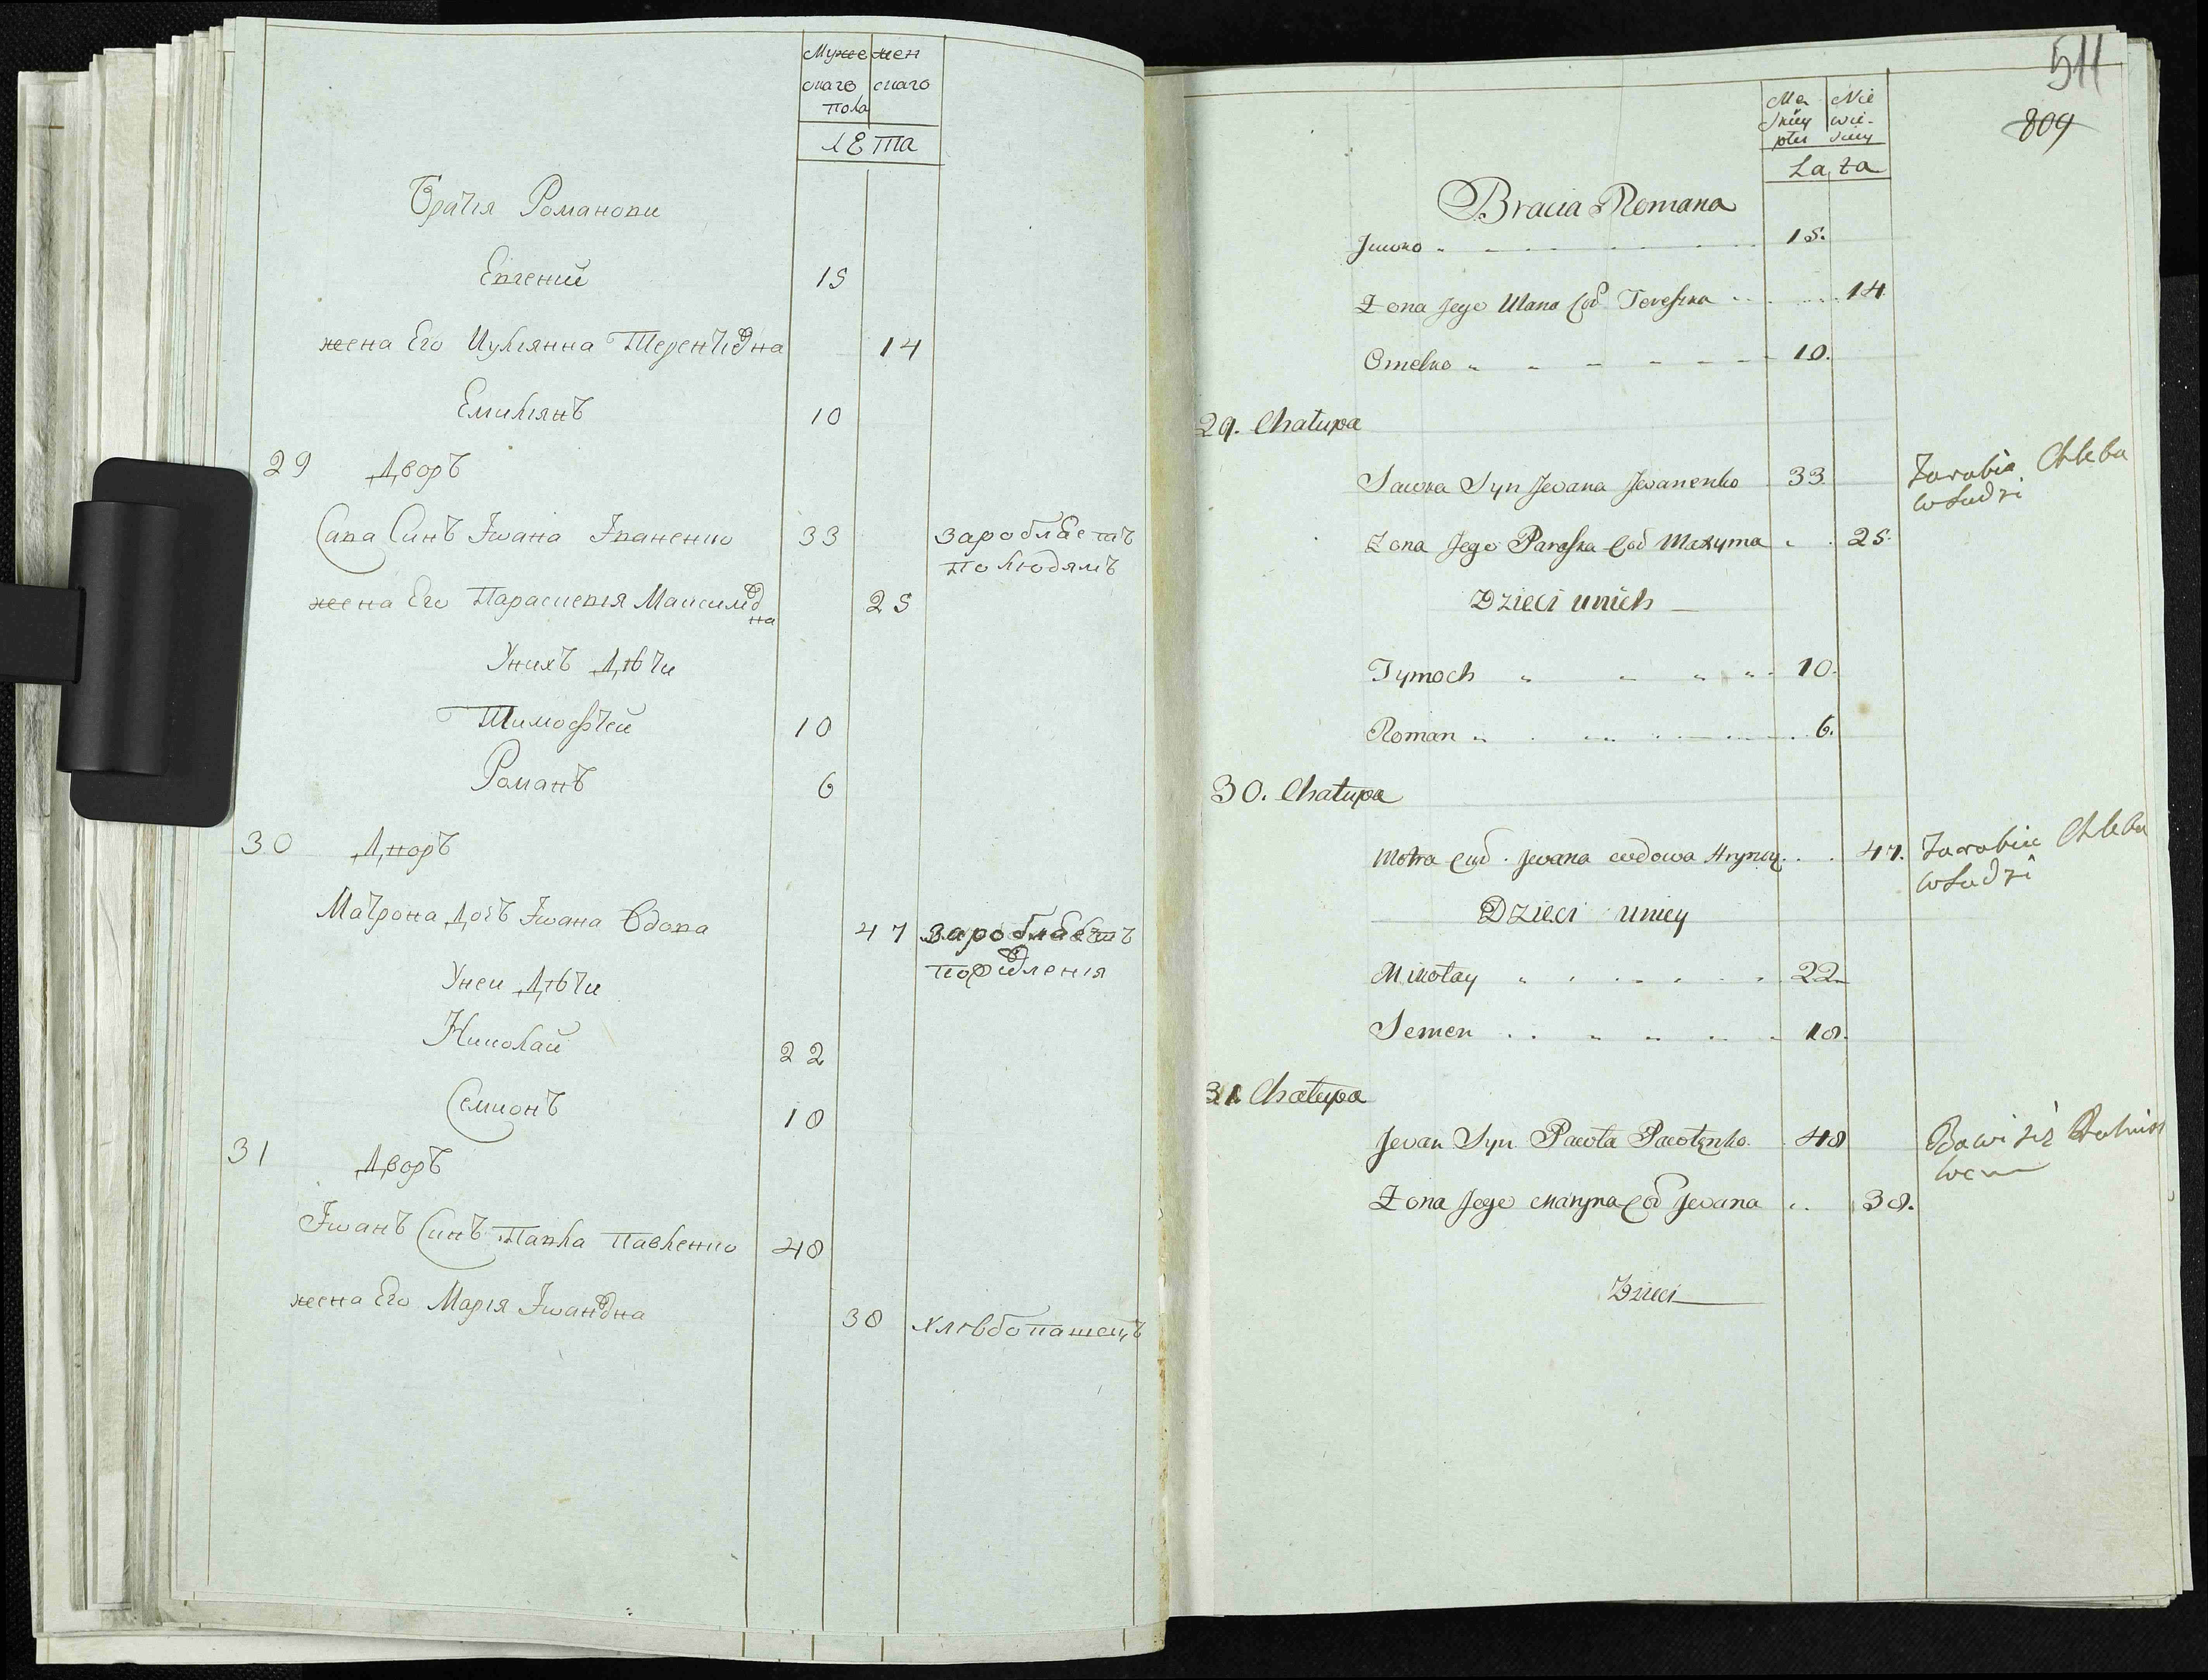 Муже жен
скаго скаго
пола
лЕта
Братія Романови
Евгений 15
жена Его Иуліянна Терентіевна 14
Емиліянъ 10
29 Дворъ
Сава Синъ Іwана Іваненко 33 зароблЯетъ
по людямъ
жена Его Параскевія Максимов
на 25
Унихъ Дѣти
Тимофтей 10
Романъ 6
30 Дворъ
Матрона Дочъ Іwана Вдова 47 зароблЯетъ
Унеи Дѣти
Николай 22
Семионъ 18
31 Дворъ
Іwанъ Синъ Павла Павленко 48
жена Его Марія Іwановна 38 хлѣбопашецъ
511
809
Mę Nie
skiey wie-
płci sciey
Lata
Bracia Romana
Jewko 15.
Zona Jego Ulana Cod Tereszka 14
Omelko 10.
29. Chałupa
Sawka Syn Jewana Jewanenko 33 Zarabia Chleba
w Ludzi
Zona Jego Paraska Cod Maxyma 25.
Dzieci u nich
Tymoch 10.
Roman 6.
30. Chałupa
Motra Cod. Jewana wdowa 47. Zarabia Chleba
w Ludzi
Dzieci u niey
Mikołay 22
Semen 18.
31 Chałupa
Jewan Syn Pawła Pawłenko 48 Bawi się Rolnict
wem
Zona Jego Maryna Cod Jewana 38.
Dzieci